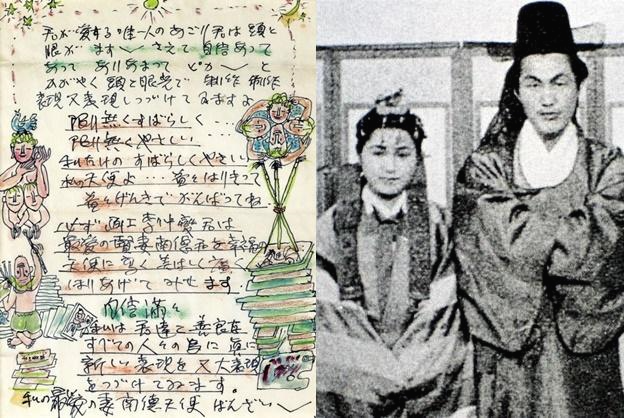 君が愛する唯一人のあごり君は頭と
眼がます〱さえて自信あって
あって ありあまって ピカ〱と
かがやく頭と眼光で 制作 制作
表現又表現しつづけてゐますよ
限り無くすばらしく…
限り無くやさしい…
私だけの すばらしくやさしい
私の天使よ… 益々はりきって
益々げんきでがんばってね
必ず 画工李仲燮君は
最愛の賢妻南德君を幸福の
天使に高く美しく
あげて みせます.
自信満々
私は君達と善良な
すべての人々の為に 真に
新しい表現を 又大表現
をつづけてゐます.
私の最愛の妻南德天使 ばんざい